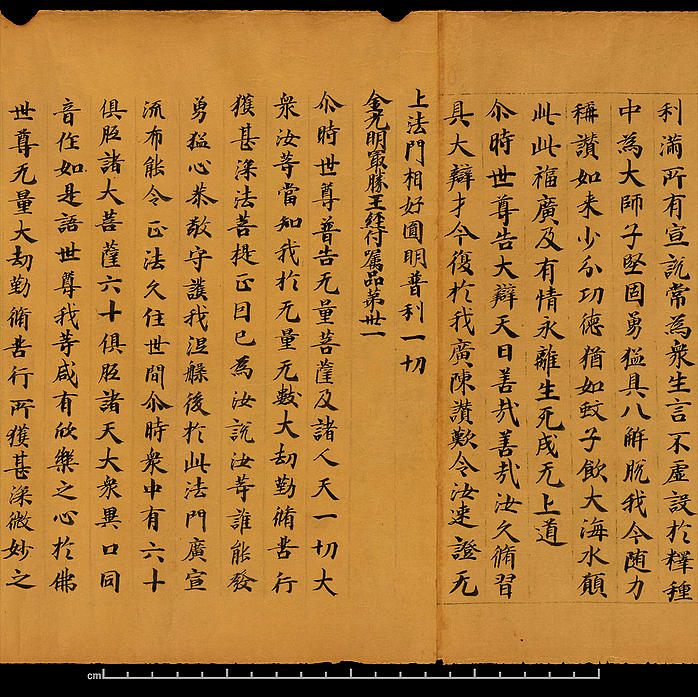 利滿所有宣說常為衆生言不虛設於釋種
中為大師子堅固勇猛具八解脫我今随力
稱讚如来少分功德猶如蚊子飲大海水願
此此福廣及有情永離生死成无上道
尒時世尊告大辯天曰善㢤善㢤汝久脩習
具大辯才今復於我廣陳讃歎令汝速證无
上法門相好圓明普利一切
金光明冣勝王経付属品第卅一
尒時世尊普告无量菩薩及諸人天一切大
衆汝等當知我於无量无數大劫勤脩苦行
獲甚深法菩提正因已為汝說汝等誰能發
勇猛心恭敬守護我涅槃後於此法門廣宣
流布能令正法久住世間尒時衆中有六十
俱胝諸大菩薩六十俱胝諸天大衆異口同
音作如是語世尊我等咸有欣樂之心於佛
世尊无量大劫勤脩苦行所獲甚深微妙之
cm